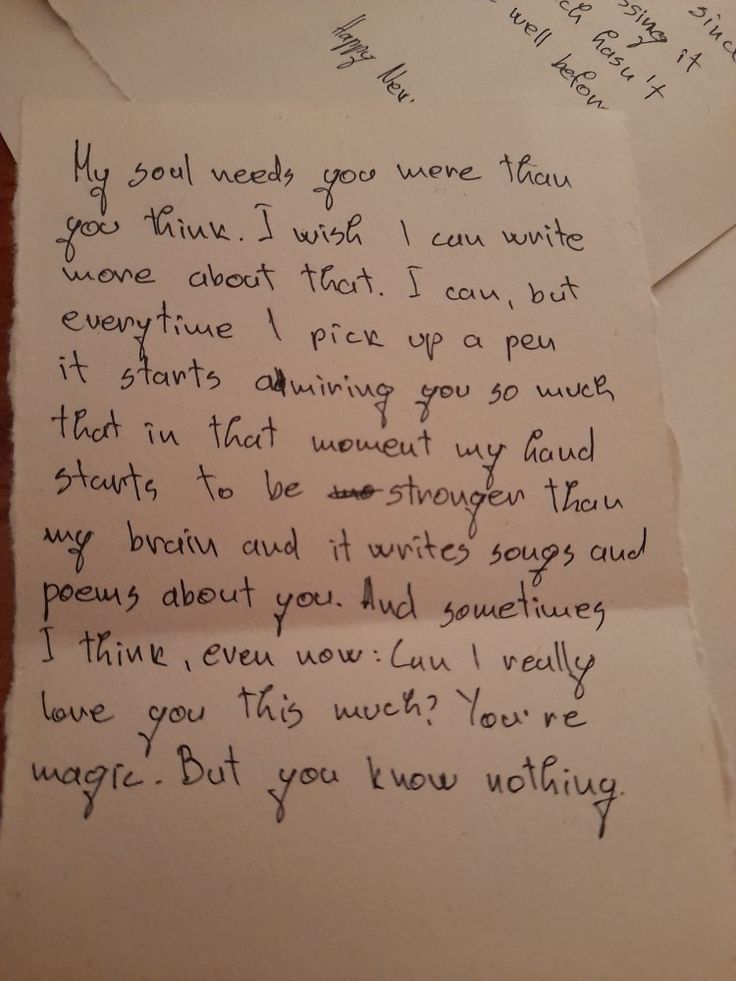 since
ssing it
ch hasn't
well before
Happy New
My soul needs you more than
you think. I wish I can write
more about that. I can, but
everytime I pick up a pen
it starts admiring you so much
that in that moment my hand
starts to be stronger than
my brain and it writes songs and
poems about you. And sometimes
I think, even now: Can I really
love you this much? You're
magic. But you know nothing.